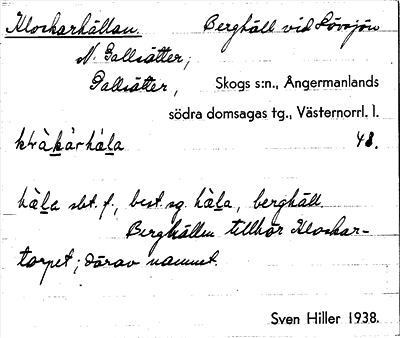 Klockarhällan. Berghäll vid Lövsjön
N. Gallsätter,
Gallsätter, Skogs s:n., Ångermanlands
södra domsagas tg., Västernorrl. l.
klràkàrhála 48.
hàla sbt. f., best. sg. hàla, berghäll.
Berghällen tillhör Klockar-
torpet; därav namnet.
Sven Hiller 1938.